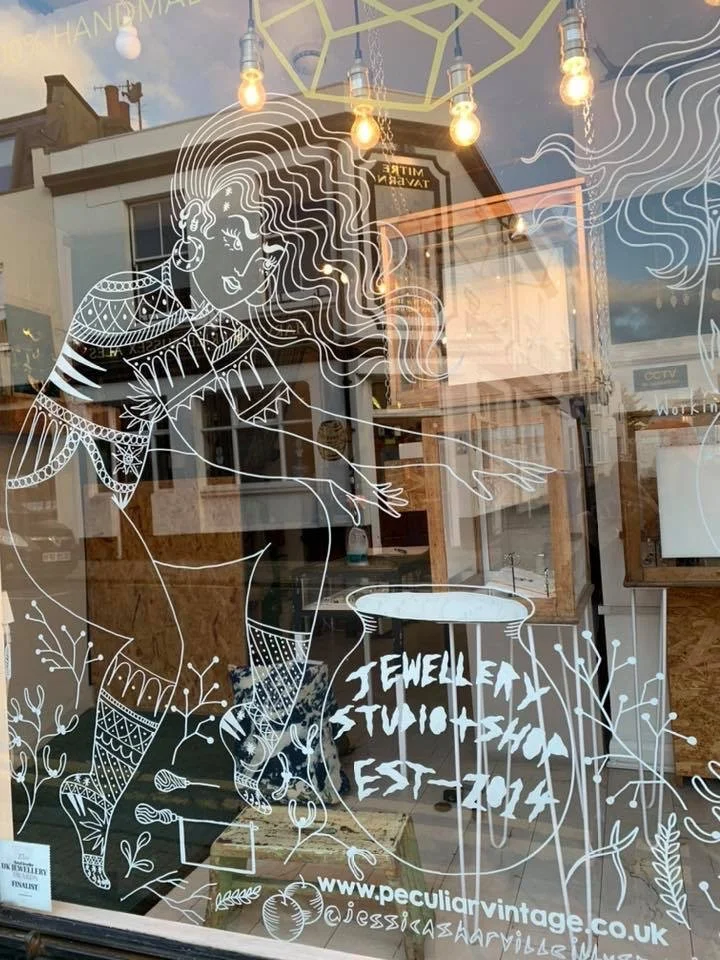 100% HANDMA
MITRE
TAVERN
CCTV
Workin
JEWELLERY
STUDIO + SHOP
EST-2014
UK JEWELLERY
AWARDS
FINALIST
www.peculiarvintage.co.uk